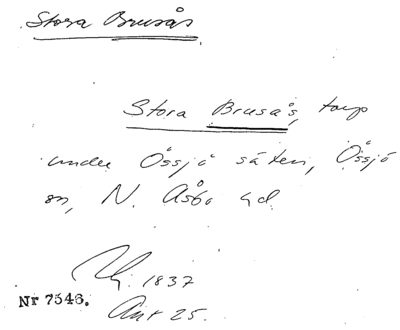 Stora Brusås
Stora Brusås, torp
under Össjö säteri, Össjö
sn, N. Åsbo hd.
1837
Nr 7546.
Ant 25.